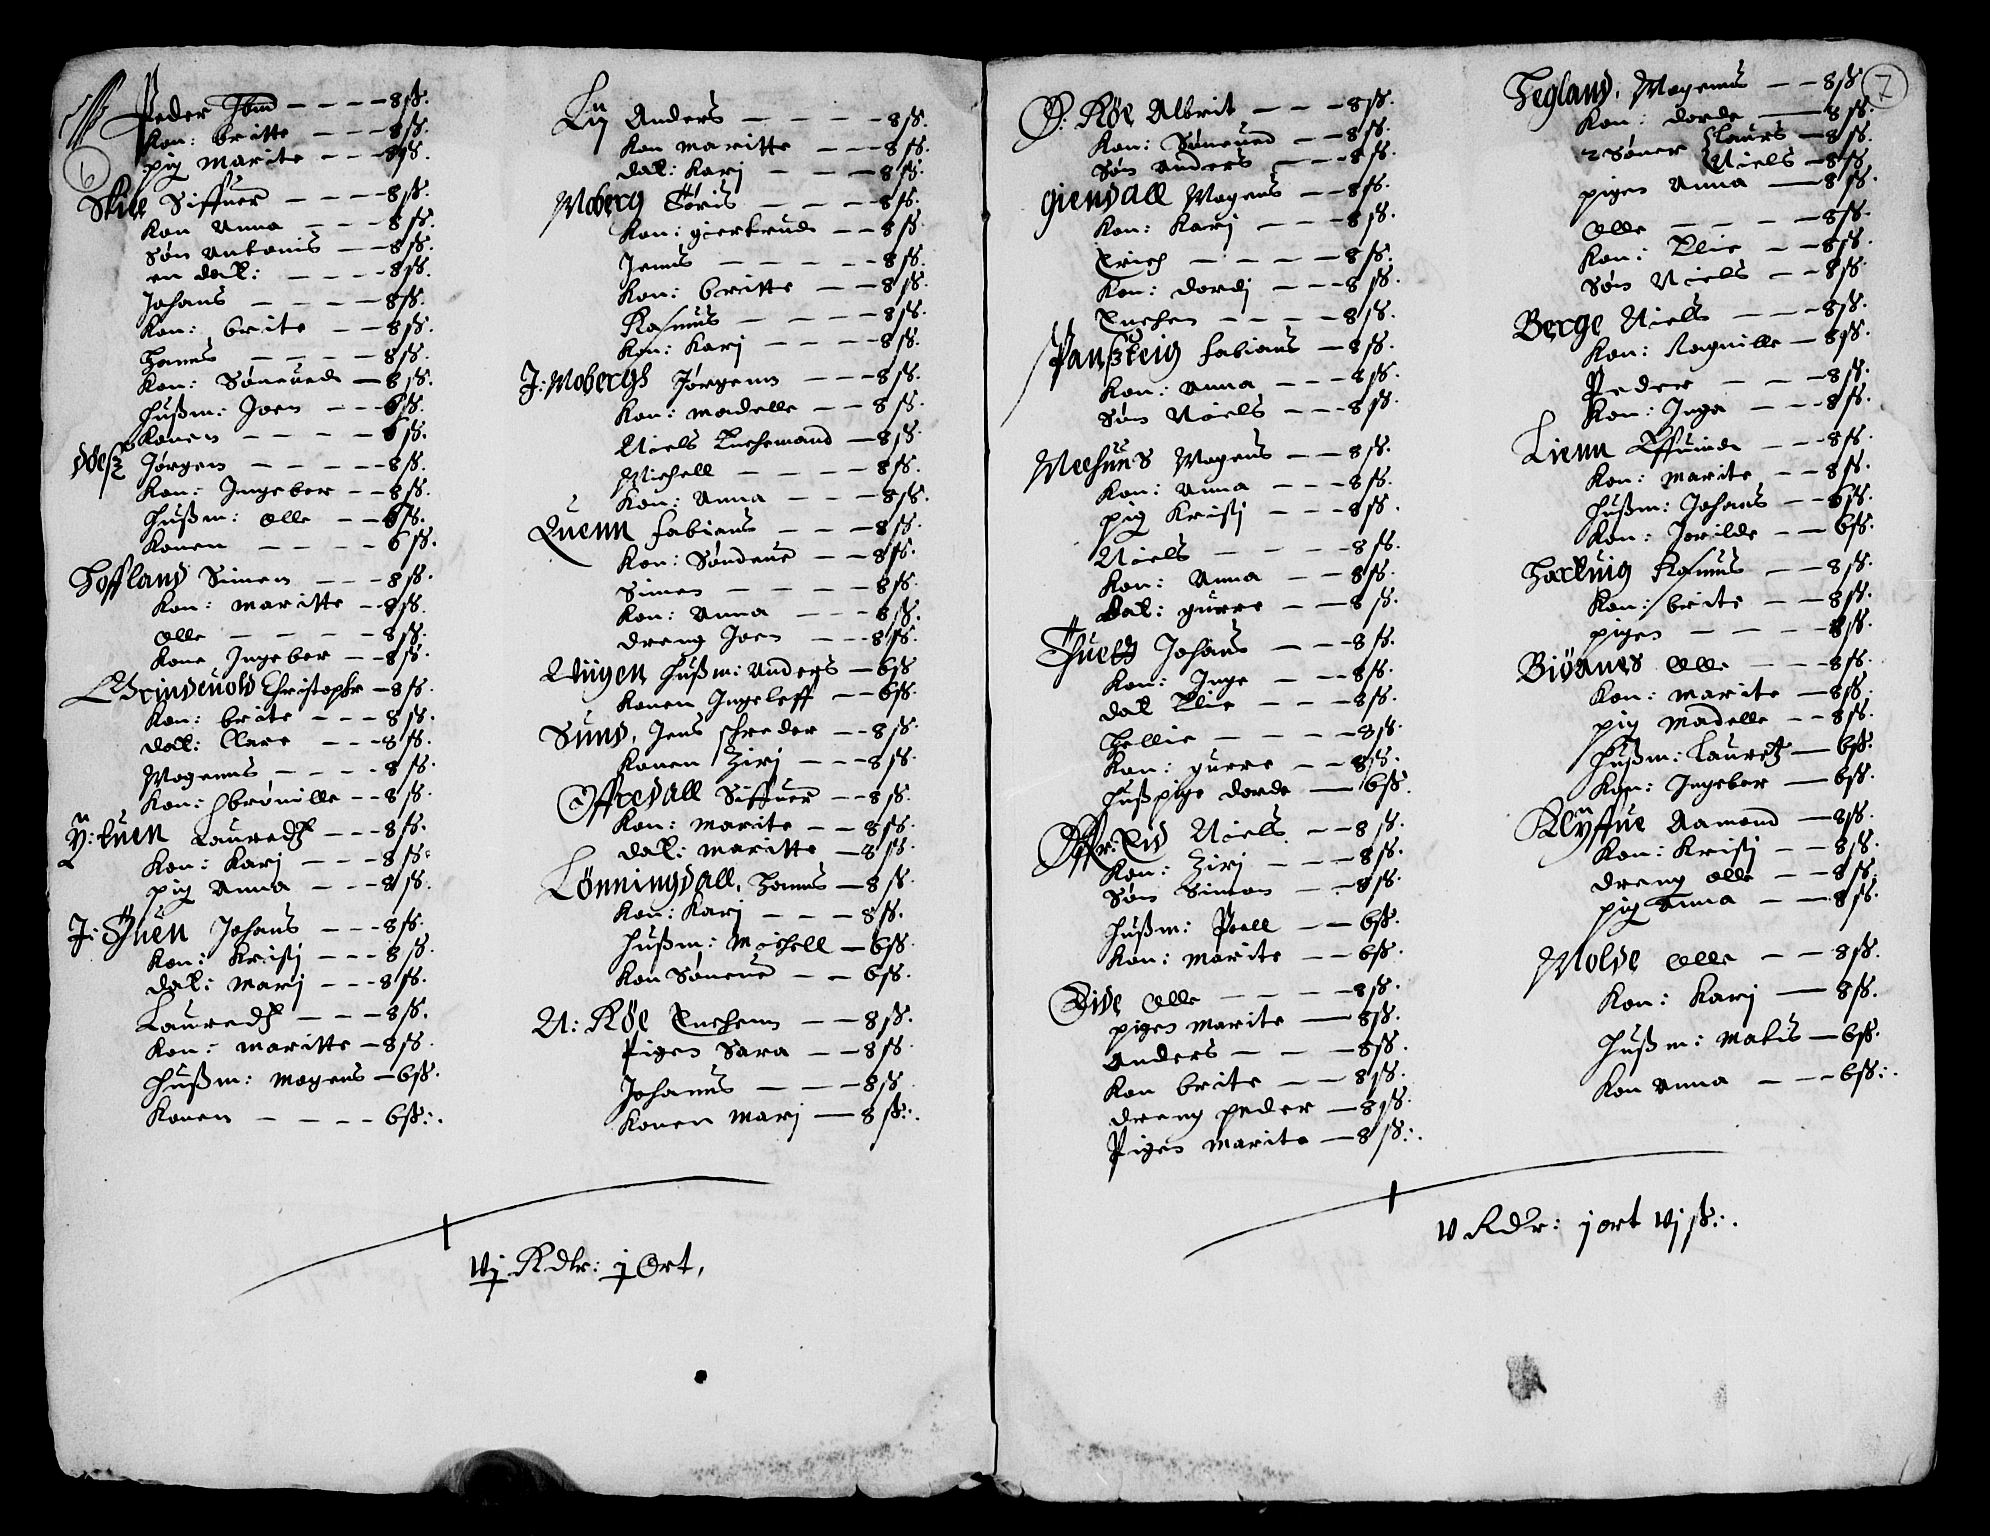 6
Peder - - - - 8 ß.
Kon: britte - - - 8 ß.
pig Marite - - - 8 ß.
Skiee Siffuer - - - 8 ß.
Kon Anna - - - 8 ß.
Søn Antonis - - - 8 ß.
en dat: - - - - 8 ß.
Johans - - - - 8 ß.
Kon: brite - - 8 ß.
Hanns - - - - - 8 ß.
Kon: Søneued - 8 ß.
Hußm: Joen - - - 6 ß.
Konen - - - - 6 ß.
Jørgen - - - - - 8 ß.
Kon: Ingeber - - 8 ß.
Hußm: Olle - - 6 ß.
Konen - - - - 6 ß.
Hoffland Simen - - - 8 ß.
Kon: maritte - 8 ß.
Olle - - - - - 8 ß.
Kone Ingeber - - 8 ß.
Grindeuold Christopfr - 8 ß.
Kon: brite - - - 8 ß.
dat: Clare - - - 8 ß.
Mogenns - - - - 8 ß.
Kon: brønille - - 8 ß.
Y: tuen Lauredtz - - - 8 ß.
Kon: Karj - - - 8 ß:
pig Anna - - - 8 ß.
J: Thuen Johans - - - 8 ß.
Kon: Kristj - - - 8 ß.
dat: Marj - - - 8 ß.
Lauredtz - - - 8 ß.
Kon: maritte - 8 ß.
Hußm: Mogens - 6 ß.
Konen - - - - 6 ß:.
Lij Anders - - - - - 8 ß.
Kon maritte - - - 8 ß.
dat: Karj - - - 8 ß.
Moberg Tøris - - - - 8 ß.
Kon: giertrud - - 8 ß.
Jenns - - - - - - 8 ß.
Kon: britte - - 8 ß.
Rasmus - - - - - 8 ß.
Kon: Karj - - - - 8 ß.
J: Mobergh Jørgenn - - - 8 ß.
Kon: madelle - - 8 ß.
Niels Enchemand - 8 ß.
Michell - - - - - 8 ß.
Kon: Anna - - - 8 ß.
Quenn fabians - - - 8 ß.
Kon: Søndeue - - 8 ß.
Simen - - - - - 8 ß.
Kon: Anna - - - 8 ß.
dreng Joen - - - 8 ß.
Wiigen Hußm: Anders - 6 ß
Konen Ingeleff - - 6 ß.
Sund, Jens schreder - - 8 ß.
Konen Zirj - - - 8 ß.
Offredall Siffuer - - 8 ß.
Kon: marite - - 8 ß.
dat: maritte - 8 ß.
Lønningdall, Hanns - 8 ß.
Kon: Karj - - - 8 ß.
Hußm: Michell - 6 ß.
Kon Søneue - - 6 ß.
N: Røe Enchenn - - 8 ß.
Pigen Sara - - 8 ß.
Johanns - - - - 8 ß.
Konen Marj - 8 ß:.
vj Rdlr: j Ort,
7
Ø: Røe Albrit - - - 8 ß.
Kon: Søneued - - 8 ß.
Søn Anders - - - 8 ß.
giendall Mogens - - 8 ß.
Kon: Karj - - - 8 ß.
Erich - - - - - 8 ß.
Kon: dordj - - - 8 ß.
Enchen - - - - 8 ß.
Panßteig fabians - 8 ß.
Kon: Anna - - - 8 ß.
Søn Niels - - - 8 ß.
Mogens - - - 8 ß.
Kon: Anna - - - 8 ß.
pig Kristj - - - 8 ß.
Niels - - - - - 8 ß.
Kon: Anna - - 8 ß.
dat: gurre - - 8 ß.
Johans - - - 8 ß.
Kon: Inge - - - 8 ß.
dat Elie - - - - 8 ß.
Hellie - - - - - 8 ß.
Kon: gurre - - 8 ß.
Hußpige dorde - 6 ß.
Offr: Eid Niels - - 8 ß.
Kon: Zirj - - - 8 ß.
Søn Simon - - 8 ß.
Hußm: Poell - - 6 ß.
Kon: Marite - - 6 ß.
Eide Olle - - - - 8 ß.
pigen Marite - 8 ß.
Anders - - - - 8 ß.
Kon brite - - - 8 ß.
dreng peder - 8 ß.
Pigen Marite - 8 ß:.
Tegland, Mogenns - - 8 ß.
Kon: dorde - 8 ß.
2 Søner Laurs - 8 ß.
Niels - 8 ß.
pigen Anna - 8 ß.
Olle - - - - 8 ß.
Kon: Elie - - 8 ß.
Søn Niels - - 8 ß.
Berge Niells - - - 8 ß.
Kon: Ragnille - 8 ß.
Peder - - - - 8 ß.
Kon: Inga - - - 8 ß.
Lienn Effuind - - - 8 ß.
Kon: Marite - - 8 ß.
Hußm: Johans - - 6 ß.
Kon: Jorilde - - 6 ß.
Hartuig Rasmus - - 8 ß.
Kon: brite - - 8 ß.
pigen - - - - 8 ß.
Biønnes Olle - - - 8 ß.
Kon: marite - 8 ß.
pig Madelle - - 8 ß.
Hußm: Lauretz - 6 ß.
Kon: Ingeber - 6 ß.
Klyffue Aamond - 8 ß.
Kon: Kristj - - 8 ß.
dreng Olle - - 8 ß.
pig Anna - - 8 ß.
Molde Olle - - 8 ß.
Kon: Karj - 8 ß.
Hußm: Matis - 6 ß.
Kon Anna - - - 6 ß:.
v Rdr: j ort vj ß:.